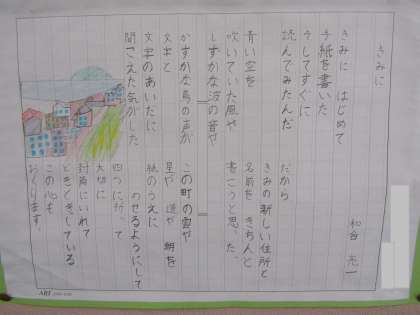 きみに
和合 亮一
きみに はじめて
手紙を書いた
そしてすぐに
読んでみたんだ
青い空を
吹いていた風や
しずかな波の音や
かすかな鳥の声が
文字と
文字のあいだに
聞こえた気がした
だから
きみの新しい住所と
名前を きちんと
書こうと思った。
この町の雲や
星や 道や 朝を
紙のうえに
のせるようにして
四つに折って
大切に
封筒にいれて
どきどきしている
この心を
おくります
ART